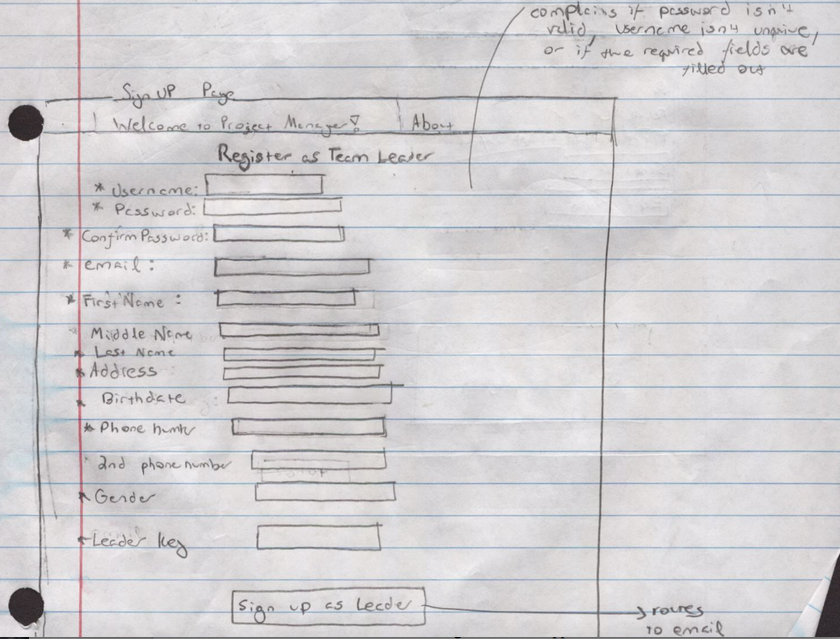 complains if password isn't
valid, username isn't unqive,
or if the required fields are
filled out
Sign UP Page
Welcome to Project Manager! About
Register as Team Leader
* Username:
* Password:
* Confirm Password:
* email:
* First Name :
Middle Name
* Last Name
* Address
* Birthdate
* Phone number
2nd phone number
* Gender
* Leader Key
Sign up as Leader
routes
to email